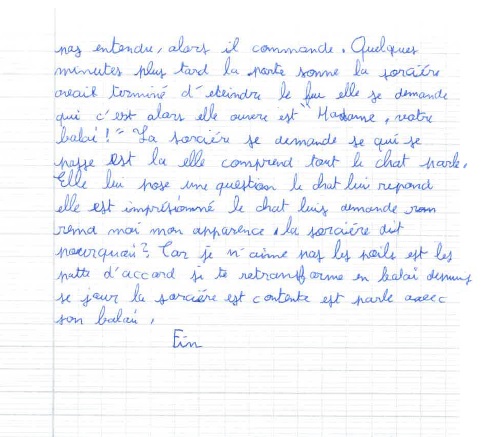 pas entendu, alors il commande. Quelques
minutes plus tard la porte sonne la sorcière
avait terminé d'éteindre le feu elle se demande
qui c'est alors elle ouvre est "Madame, votre
balai!" La sorcière se demande se qui se
passe est la elle comprend tout le chat parle.
Elle lui pose une question le chat lui repond
elle est imprésionné le chat luis demande
rend moi mon apparence. la sorcière dit
pourquoi? Car je n'aime pas les poils est les
patte d'accord si te retransforme en balai depuis
se jour la sorcière est contente est parle avec
son balai.
Fin